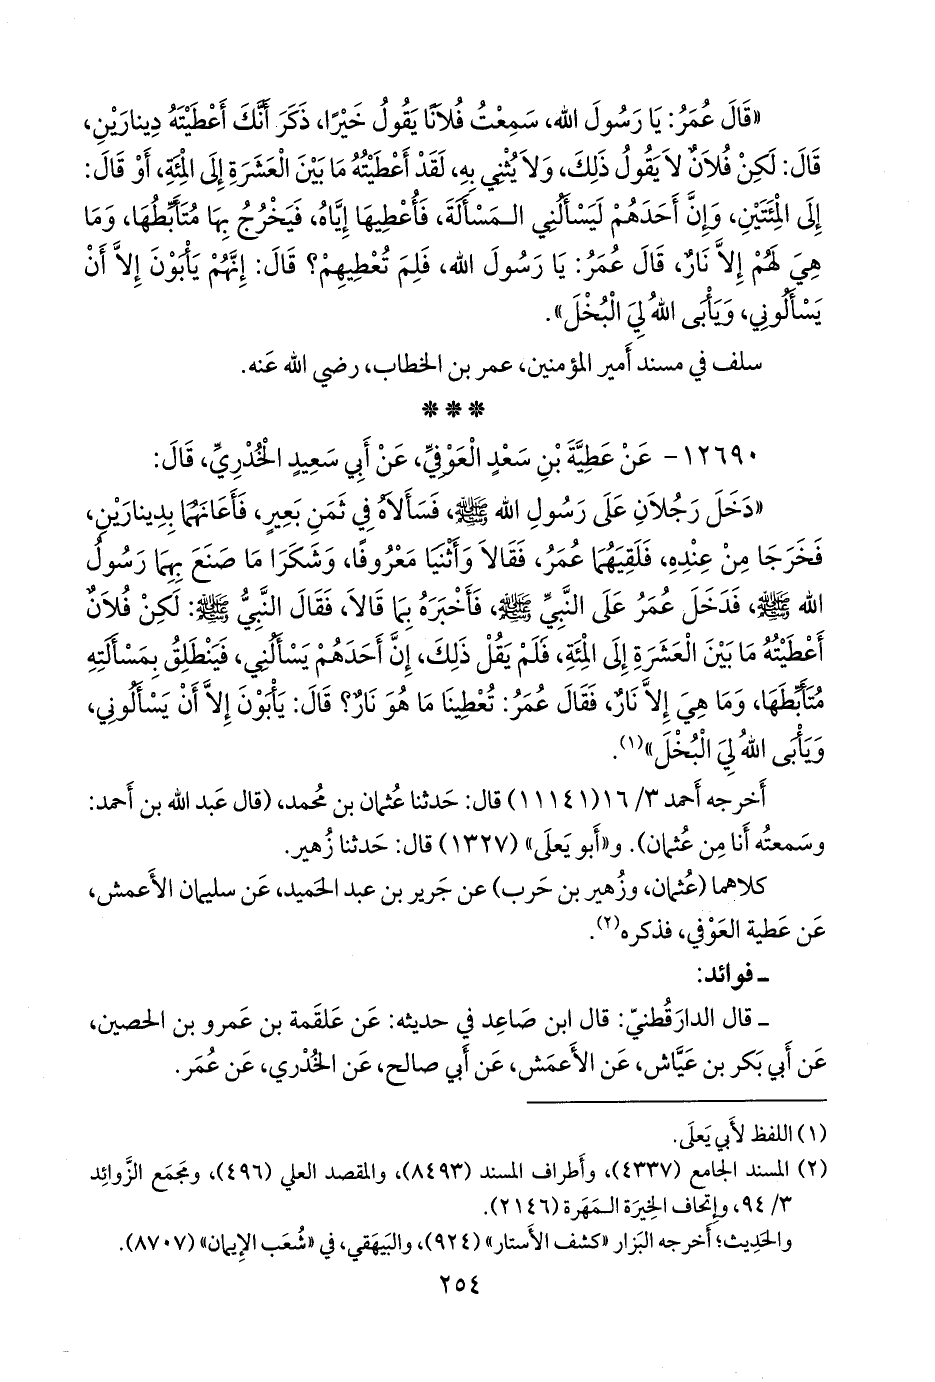 «قَالَ عُمَرُ: يَا رَسُولَ الله، سَمِعْتُ فُلاَنًا يَقُولُ خَيْرًا، ذَكَرَ أَنَّكَ أَعْطَيْتَهُ دِينَارَيْنِ،
قَالَ: لَكِنْ فُلاَنٌ لاَ يَقُولُ ذَلِكَ، وَلاَ يُثْنِي بِهِ، لَقَدْ أَعْطَيْتُهُ مَا بَيْنَ الْعَشَرَةِ إِلَى الْمِئَةِ، أَوْ قَالَ:
إِلَى الْمِئَتَيْنِ، وَإِنَّ أَحَدَهُمْ لَيَسْأَلُنِي الْمَسْأَلَةَ، فَأُعْطِيهَا إِيَّاهُ، فَيَخْرُجُ بِهَا مُتَأَبِّطُهَا، وَمَا
هِيَ لَهُمْ إِلاَّ نَارٌ، قَالَ عُمَرُ: يَا رَسُولَ الله، فَلِمَ تُعْطِيهِمْ؟ قَالَ: إِنَّهُمْ يَأْبَوْنَ إِلاَّ أَنْ
يَسْأَلُونِي، وَيَأْبَى اللهُ لِيَ الْبُخْلَ».
سلف في مسند أَمير المؤمنين، عمر بن الخطاب، رضي الله عَنه.
***
١٢٦٩٠- عَنْ عَطِيَّةَ بْنِ سَعْدٍ الْعَوْفِيِّ، عَنْ أَبِي سَعِيدٍ الْخُدْرِيِّ، قَالَ:
«دَخَلَ رَجُلاَنِ عَلَى رَسُولِ الله ﷺ، فَسَأَلاَهُ فِي ثَمَنِ بَعِيرٍ، فَأَعَانَهُمَا بِدِينَارَيْنِ،
فَخَرَجَا مِنْ عِنْدِهِ، فَلَقِيَهُمَا عُمَرُ، فَقَالاَ وَأَثْنَيَا مَعْرُوفًا، وَشَكَرَا مَا صَنَعَ بِهِمَا رَسُولُ
الله ﷺ، فَدَخَلَ عُمَرُ عَلَى النَّبِيِّ ﷺ، فَأَخْبَرَهُ بِمَا قَالاَ، فَقَالَ النَّبِيُّ ﷺ: لَكِنْ فُلاَنٌ
أَعْطَيْتُهُ مَا بَيْنَ الْعَشَرَةِ إِلَى الْمِئَةِ، فَلَمْ يَقُلْ ذَلِكَ، إِنَّ أَحَدَهُمْ يَسْأَلُنِي، فَيَنْطَلِقُ بِمَسْأَلَتِهِ
مُتَأَبِّطَهَا، وَمَا هِيَ إِلاَّ نَارٌ، فَقَالَ عُمَرُ: تُعْطِينَا مَا هُوَ نَارٌ؟ قَالَ: يَأْبَوْنَ إِلاَّ أَنْ يَسْأَلُونِي،
وَيَأْبَى اللهُ لِيَ الْبُخْلَ»(١).
أَخرجه أَحمد ٣/ ١٦(١١١٤١) قال: حَدثنا عُثمان بن مُحمد، (قال عَبد الله بن أَحمد:
وسَمعتُه أَنا مِن عُثمان). و«أَبو يَعلَى» (١٣٢٧) قال: حَدثنا زُهير.
كلاهما (عُثمان، وزُهير بن حَرب) عن جَرير بن عبد الحَميد، عَن سليمان الأَعمش،
عَن عَطية العَوْفي، فذكره(٢).
ـ فوائد:
ـ قال الدارقُطنيّ: قال ابن صَاعِد في حديثه: عَن عَلقَمة بن عَمرو بن الحصين،
عَن أَبي بَكر بن عَيَّاش، عَن الأَعمَش، عَن أَبي صالح، عَن الخُدْري، عَن عُمَر.
(١) اللفظ لأَبي يَعلَى.
(٢) المسند الجامع (٤٣٣٧)، وأَطراف المسند (٨٤٩٣)، والمقصد العلي (٤٩٦)، ومَجمَع الزَّوائِد
٣/ ٩٤، وإِتحاف الخِيرَة المَهَرة (٢١٤٦).
والحَدِيث؛ أَخرجه البَزار «كشف الأَستار» (٩٢٤)، والبَيهَقي، في «شُعَب الإِيمان» (٨٧٠٧).
٢٥٤